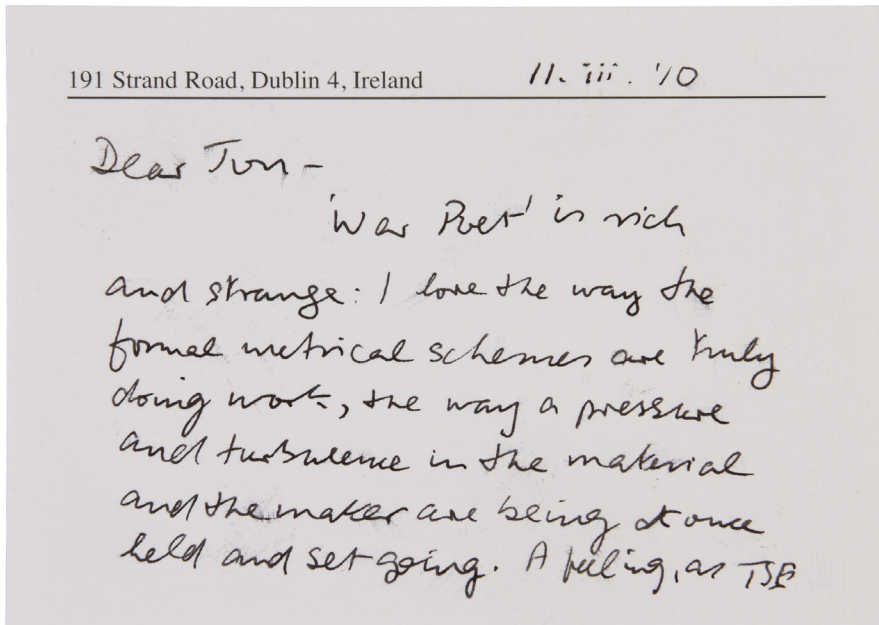 191 Strand Road, Dublin 4, Ireland 11. iii. '10
Dear Jon –
'War Poet' is rich
and strange: I love the way the
formal metrical schemes are truly
doing work, the way a pressure
and turbulence in the material
and the maker are being at once
held and set going. A feeling, as TSE